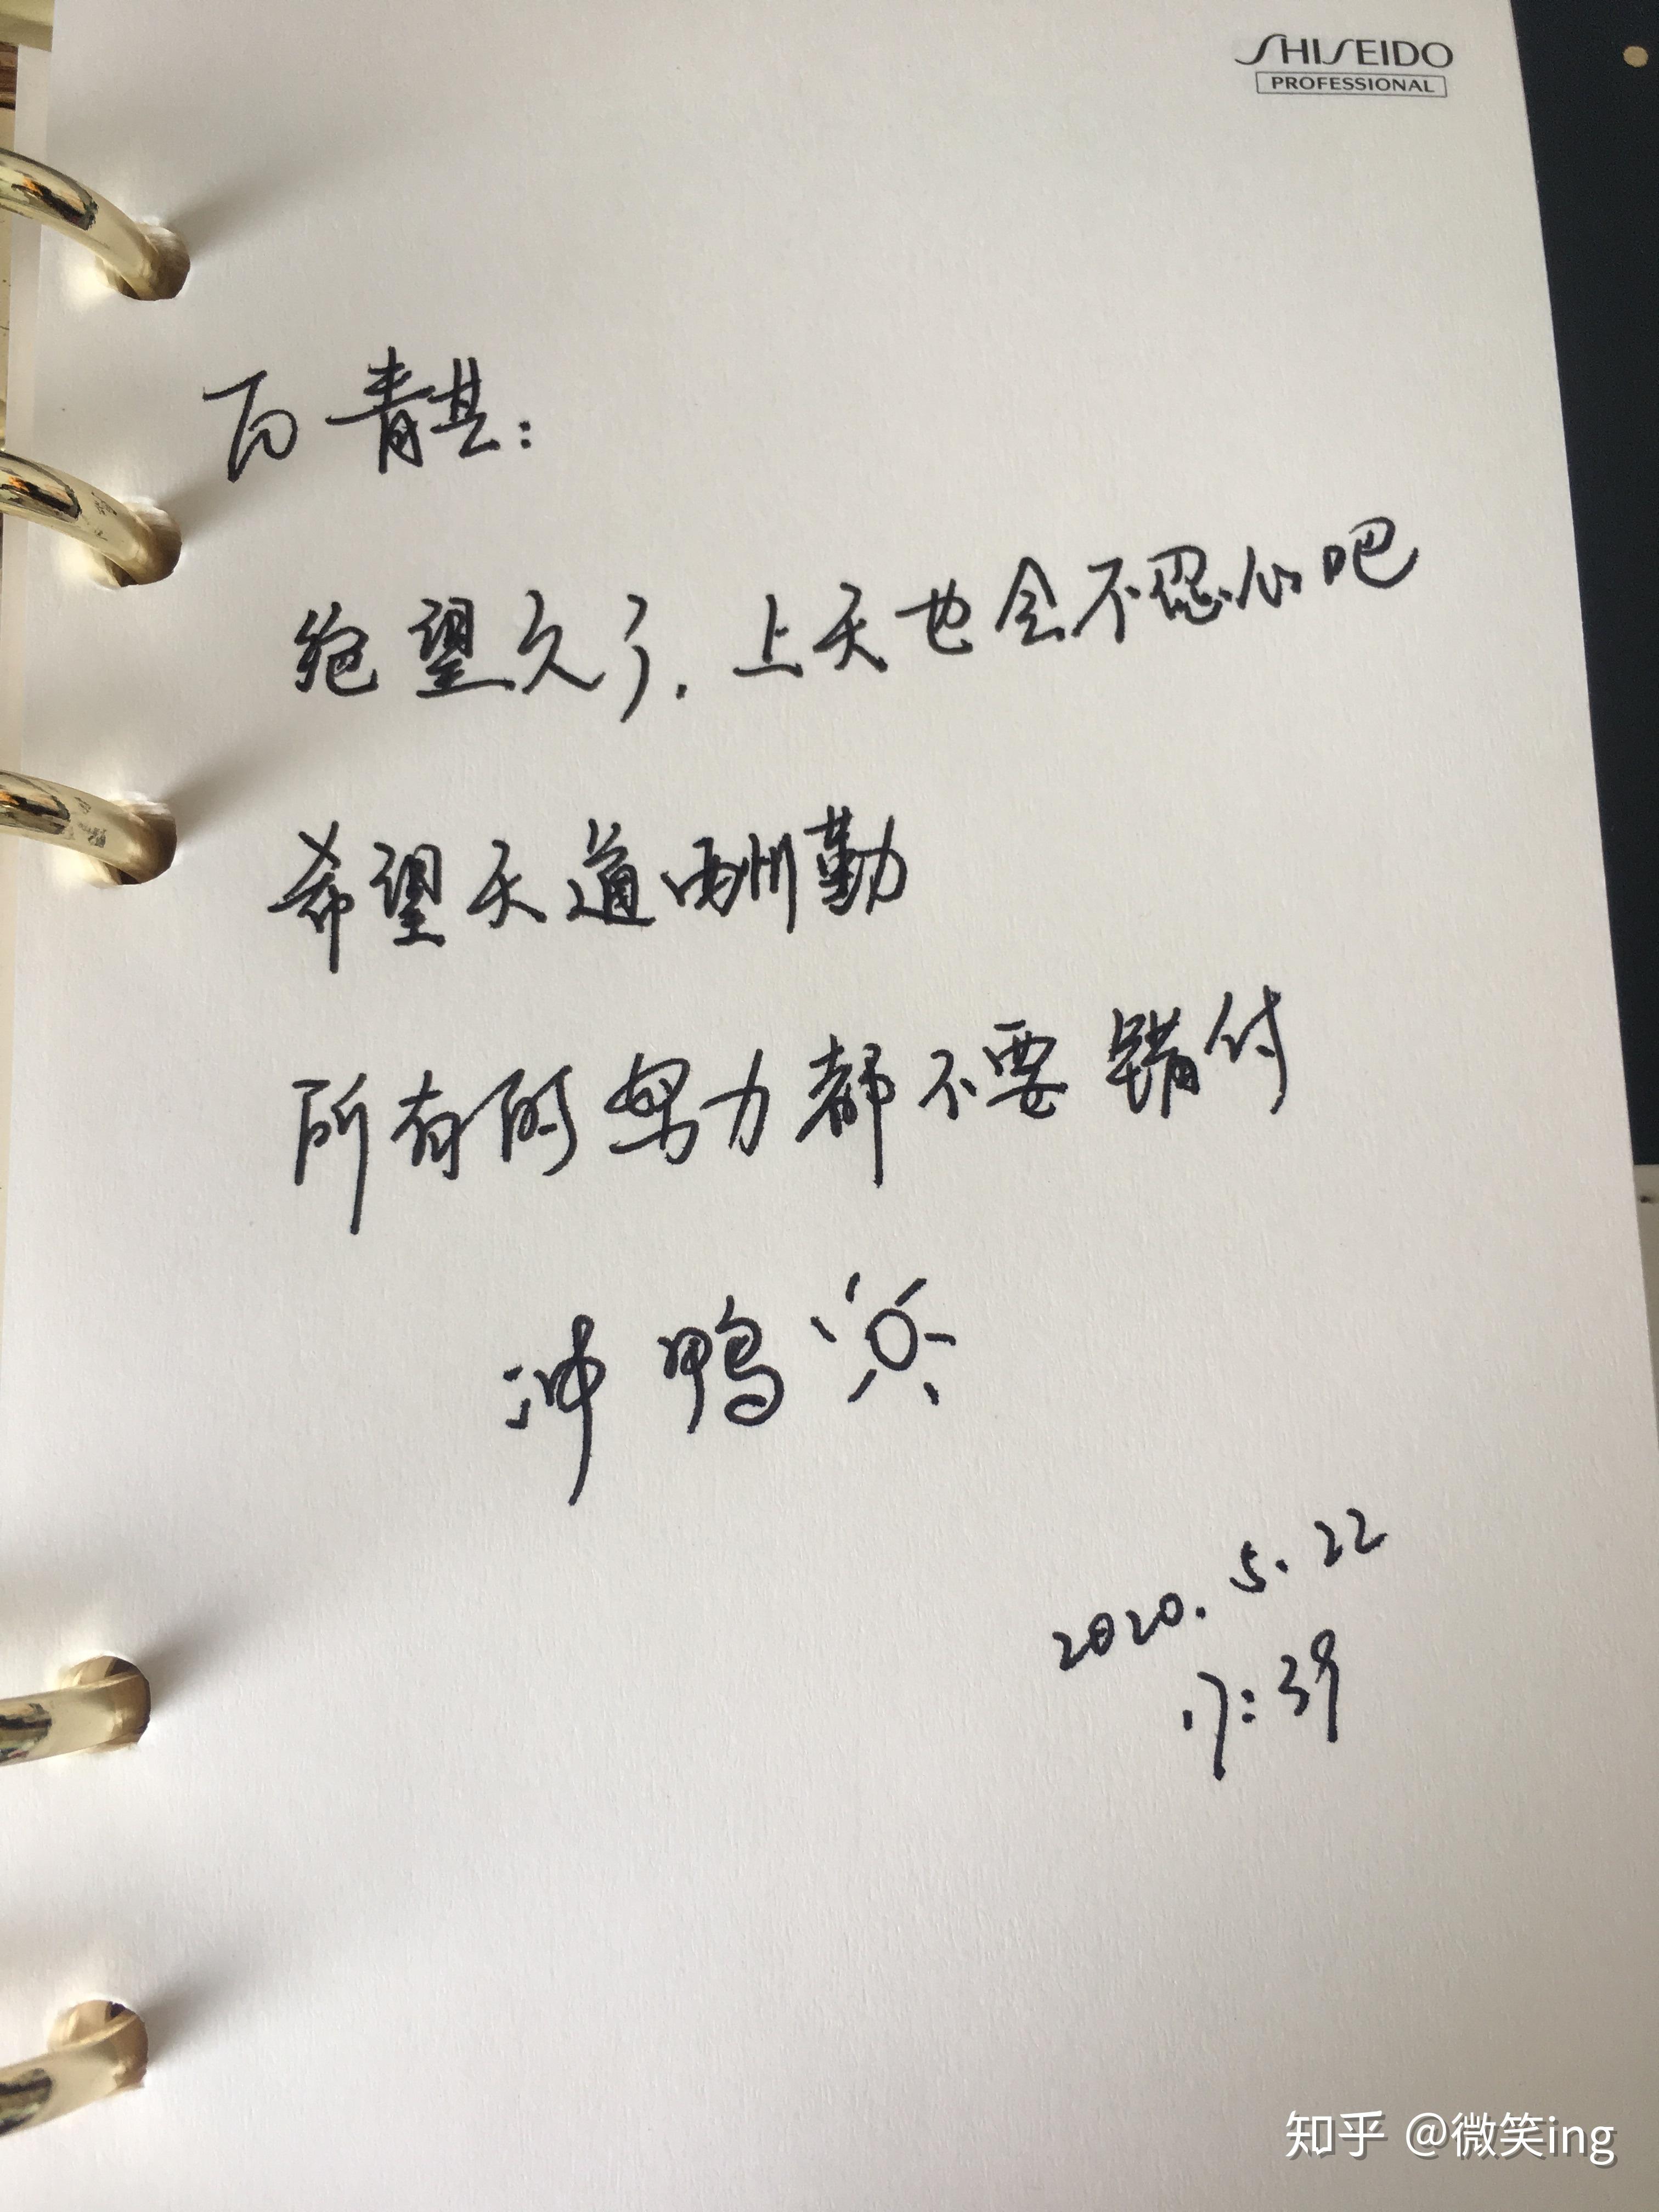 SHISEIDO
PROFESSIONAL
百青其:
绝望久了.上天也会不忍心吧
希望天道酬勤
所有的努力都不要错付
冲鸭
2020.5.22
17:39
知乎 @微笑ing